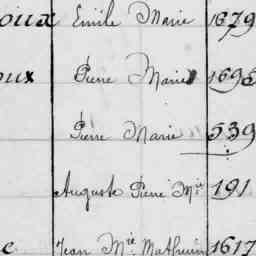 oux Emile Marie 1679
oux Pierre Marie 1695
Pierre Marie 539
Auguste Pierre Mie 191
c Jean Mie Mathurin 1617